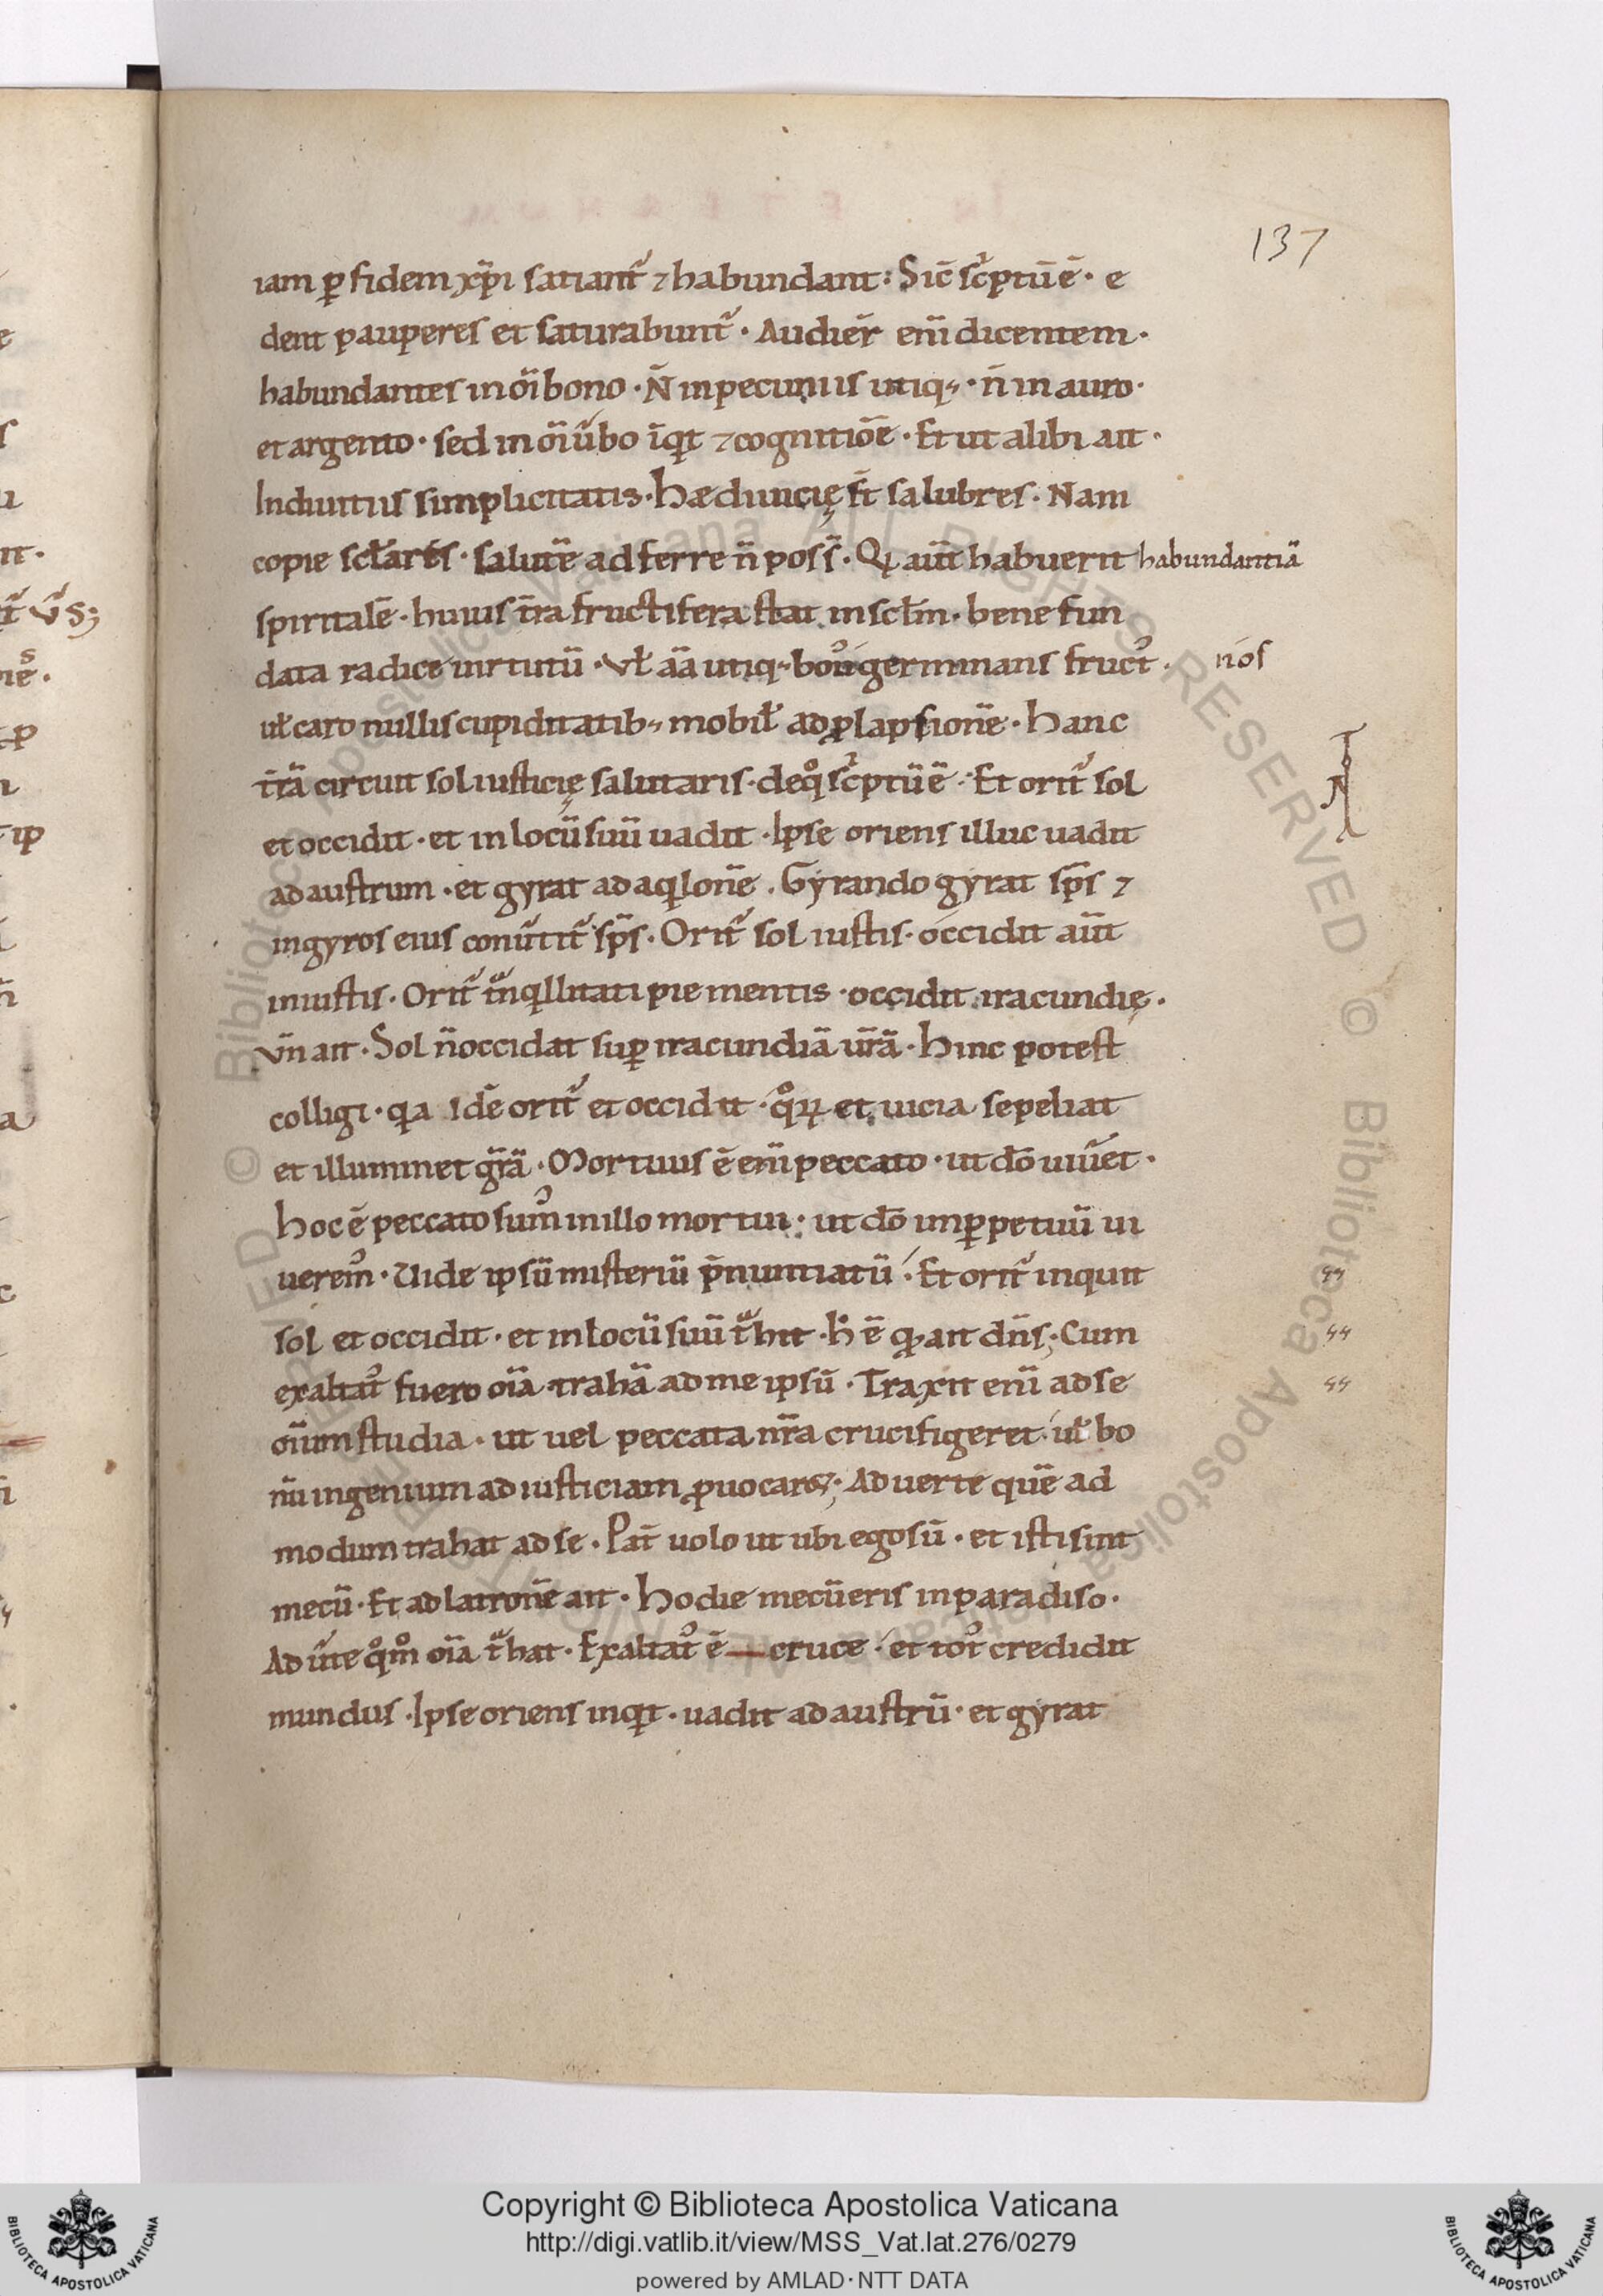 137
iam ꝑ fidem xp̄i satiant᷑ ⁊ habundant: Sic̄ sc͛ptū ē· e
dent pauperes et saturabunt᷑· Audier̄ eni̅ dicentem·
habundantes in oı̅ bono· N̄ in pecuniis utiq;· n̄ in auro·
et argento· sed in oı̅ u͛bo īqt ⁊ cognitiōe· Et ut alibi ait·
Induitius simplicitatis· Hæ diuicię st̄ salubres· Nam
copie scłares· salutē adferre n̄ poss̄· Qi aut̄ habuerit habundantiā
spiritalē· huius t̄ra fructifera stat in scłm· bene fun
data radice uirtutū· Vł aı̅a utiq; bon᷒ germinans fruct᷒· nós
uł caro nullis cupiditatib; mobił ad ꝓlapsionē· Hanc
t̄rā circuit sol iusticię salutaris· de qͦ sc͛ptū ē· Et orit᷑ sol
et occidit· et in locū suū uadit· Ipse oriens illuc uadit
ad austrum· et gyrat ad aqlonē. Gyrando gyrat sp̄s ⁊
in gyros eius conu͛tit᷑ sp̄s· Orit᷑ sol iustis· occidit aut̄
iniustis· Orit᷑ tᷓnqllitati pie mentis· occidit iracundię·
Vn̄ ait· Sol n̄ occidat suꝑ iracundiā ur̄ā· Hinc potest
colligi· qa idē orit᷑ et occidit· qͦꝝ et uicia sepeliat
et illuminet gr̄ā· Mortuus ē eni̅ peccato· ut dō uiu͛et·
Hoc ē peccato sum᷒ in illo mortui· ut dō in ꝑpetuū ui
uerem᷒· Uide ipsū misteriū p̄nuntiatū· Et orit᷑ inquit
sol et occidit· et in locū suū tᷓhit· H̄ ē qd ait dn̄s; Cum
exaltat᷒ fuero oı̅a trahā ad me ipsū· Traxit eni̅ ad se
oı̅um studia· ut uel peccata nr̄a crucifigeret· uł bo
nū ingenium ad iusticiam ꝓuocaret; Aduerte quē ad
modum trahat ad se· Pat̄ uolo ut ubi ego sū· et isti sint
mecū· Et ad latronē ait· Hodie mecū eris in paradiso·
Adu͛te qͦmͦ oı̅a tᷓhat· Exaltat᷒ ē — cruce· et tot᷒ credidit
mundus· Ipse oriens inqt· uadit ad austrū· et gyrat
Copyright © Biblioteca Apostolica Vaticana
http://digi.vatlib.it/view/MSS_Vat.lat.276/0279
powered by AMLAD·NTT DATA
BIBLIOTECA APOSTOLICA VATICANA
BIBLIOTECA APOSTOLICA VATICANA